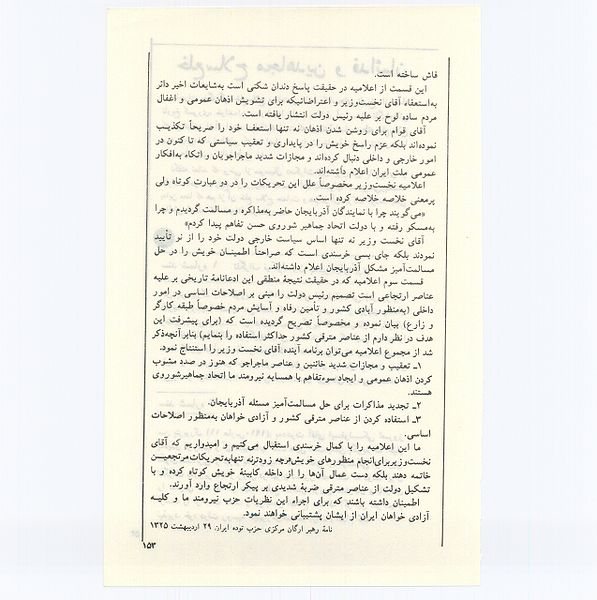 فاش ساخته است.
این قسمت از اعلامیه در حقیقت پاسخ دندان شکنی است به‌شایعات اخیر دائر
به‌استعفاء آقای نخست‌وزیر و اعتراضاتیکه برای تشویش اذهان عمومی و اغفال
مردم ساده لوح بر علیه رئیس دولت انتشار یافته است.
آقای قوام برای روشن شدن اذهان نه تنها استعفـا خود را صریحاً تکذیـب
نموده‌اند بلکه عزم راسخ خویش را در پایداری و تعقیب سیاستی که تا کنون در
امور خارجی و داخلی دنبال کرده‌اند و مجازات شدید ماجراجویان و اتکاء به‌افکار
عمومی ملت ایران اعلام داشته‌اند.
اعلامیه نخست‌وزیر مخصوصاً علل این تحریکات را در دو عبارت کوتاه ولی
پرمعنی خلاصه کرده است.
«می‌گویند چرا با نمایندگان آذربایجان حاضر به‌مذاکره و مسالمت گردیدم و چرا
به‌مسکو رفته و با دولت اتحاد جماهیر شوروی حسن تفاهم پیدا کردم»
آقای نخست وزیر نه تنها اساس سیاست خارجی دولت خود را از نو تأیید
نمودند بلکه جای بسی خرسندی است که صراحتاً اطمینـان خویش را در حل
مسالمت‌آمیز مشکل آذربایجان اعلام داشته‌اند.
قسمت سوم اعلامیه که در حقیقت نتیجهٔ منطقی این ادعانامهٔ تاریخی بر علیه
عناصر ارتجاعی است تصمیم رئیس دولت را مبنی بر اصلاحات اساسی در امور
داخلی (به‌منظور آبادی کشور و تأمین رفاه و آسایش مردم خصوصاً طبقه کارگر
و زارع) بیان نموده و مخصوصاً تصریح گردیده است که (برای پیشرفت این
هدف در نظر دارم از عناصر مترقی کشور حداکثر استفاده را بنمایم) بنابر آنچه‌ذکر
شد از مجموع اعلامیه می‌توان برنامه آینده آقای نخست وزیر را استنتاج نمود.
۱ـ تعقیب و مجازات شدید خائنین و عناصر ماجراجو که هنوز در صدد مشوب
کردن اذهان عمومی و ایجاد سوءتفاهم با همسایه نیرومند ما اتحاد جماهیرشوروی
هستند.
۲ـ تجدید مذاکرات برای حل مسالمت‌آمیز مسئله آذربایجان.
۳ـ استفاده کردن از عناصر مترقی کشور و آزادی خواهان به‌منظور اصلاحات
اساسی.
ما این اعلامیه را با کمال خرسندی استقبال می‌کنیم و امیدواریم که آقای
نخست‌وزیربرای‌انجام منظورهای خویش‌هرچه زودترنه تنهابه‌تحریکات‌مرتجعیـن
خاتمه دهند بلکه دست عمال آن‌ها را از داخله کابینهٔ خویش کوتاه کرده و با
تشکیل دولت از عناصر مترقی ضربهٔ شدیدی بر پیکر ارتجاع وارد آورند.
اطمینان داشته باشند که برای اجراء این نظریات حزب نیرومند ما و کلیـه
آزادی خواهان ایران از ایشان پشتیبانی خواهند نمود.
نامهٔ رهبر ارگان مرکزی حزب توده ایران ۲۹ اردیبهشت ۱۳۲۵
۱۵۳